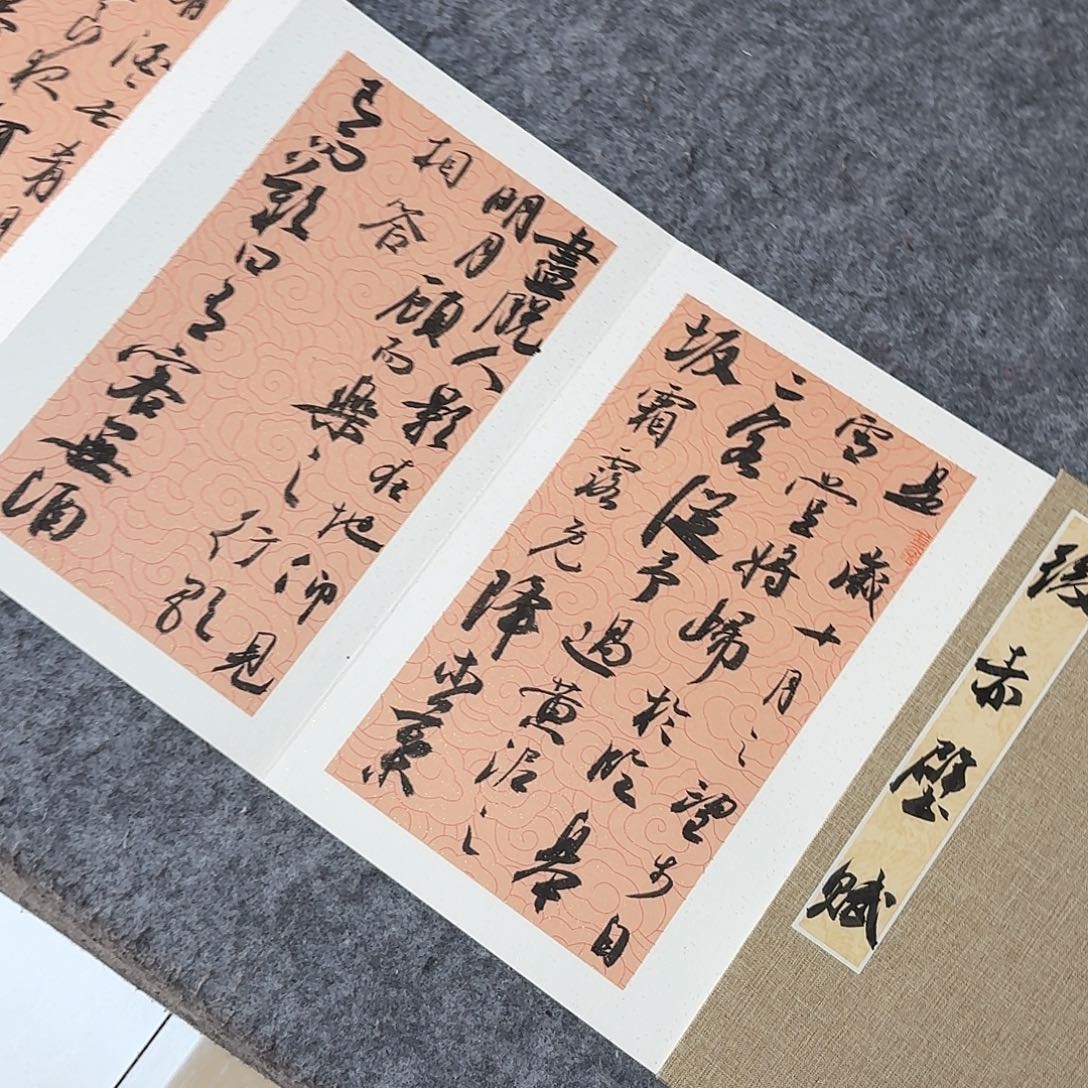 後赤壁賦
是歲十月之望步自
雪堂將歸於臨皋
二客從予過黃泥之
坂霜露既降木葉
盡脫人影在地仰見
明月顧而樂之行歌
相答
已而歎曰有客無酒
有酒无肴月
良夜何